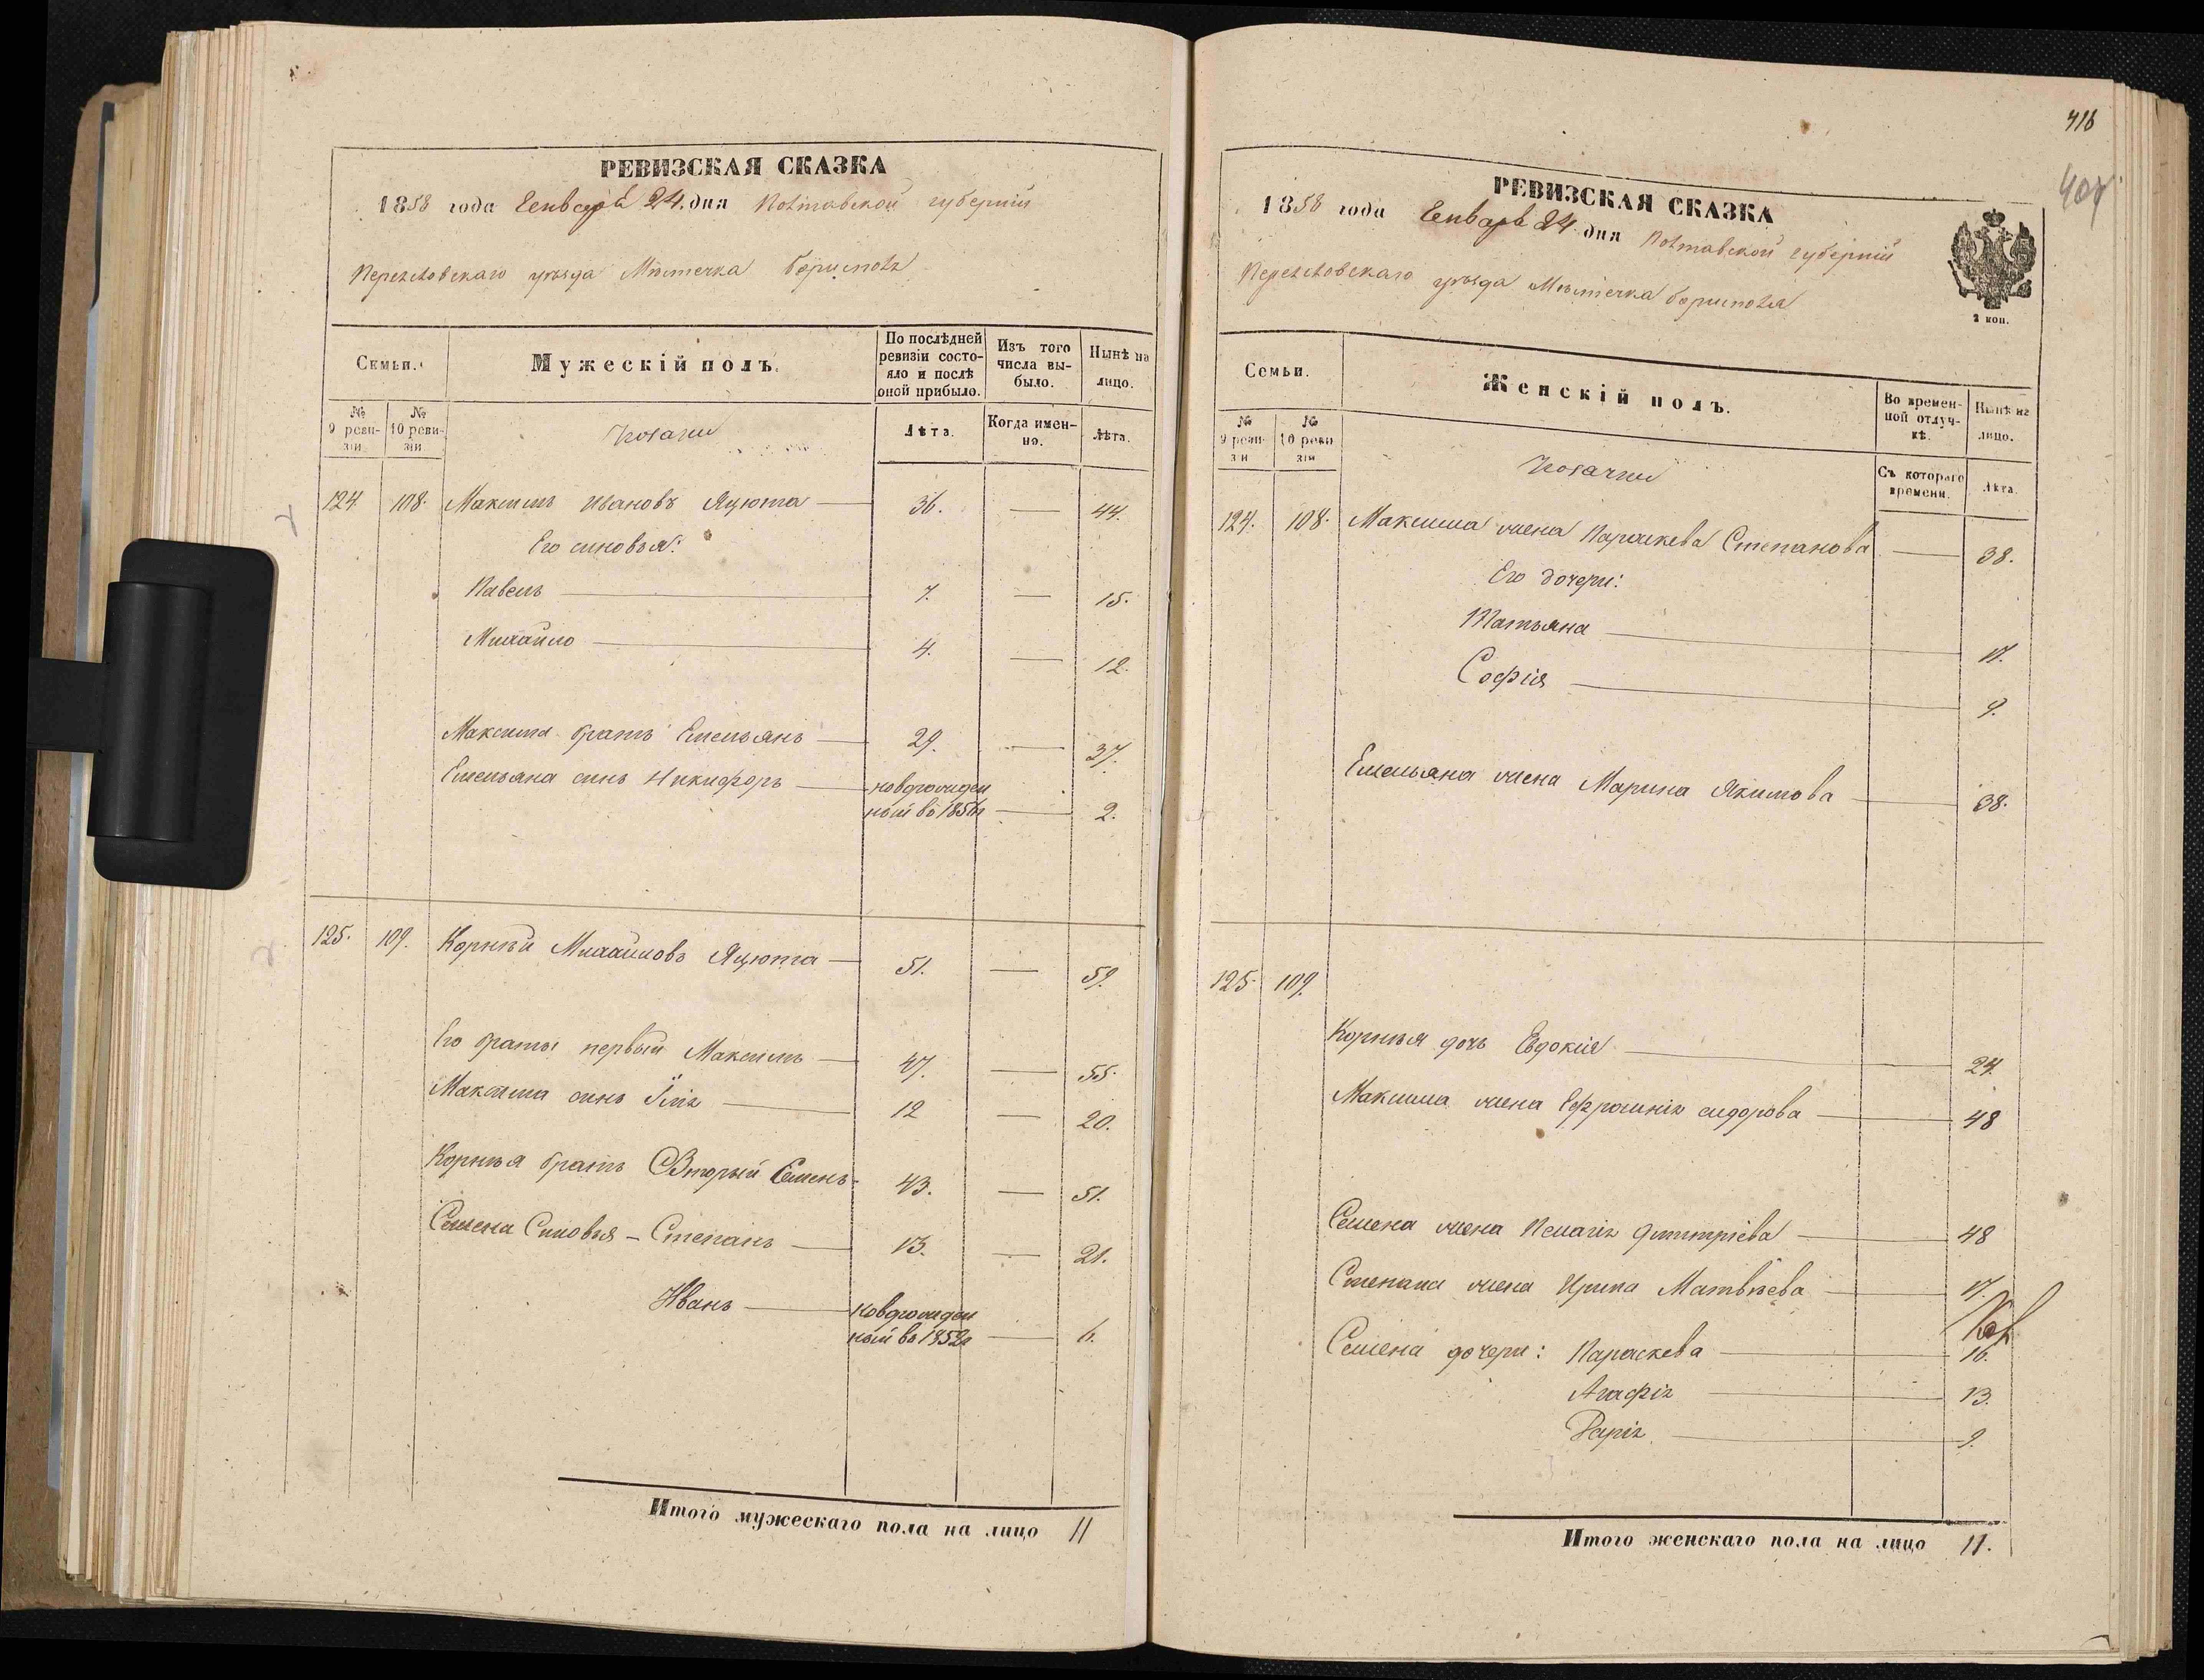 РЕВИЗСКАЯ СКАЗКА
1858 года Генваря 24 дня Полтавской губерніи
Переяловскаго уѣзда Мѣстечка Борисполя
Семьи.
Мужескій полъ.
По послѣдней ревизіи состояло и послѣ оной прибыло.
Изъ того числа выбыло.
Нынѣ на лицо.
№ 9 ревизіи
№ 10 ревизіи
Козаки
Лѣта.
Когда именно.
Лѣта.
124. 108. Максимъ Ивановъ Яцюта — 36. — 44.
Его синовья:
Павелъ — 7. — 15.
Михайло — 4. — 12.
Максима братъ Емельянъ — 29. — 37.
Емельяна синъ Никифоръ — новорожден
ный въ 1856 — 2.
125. 109. Корнѣй Михайловъ Яцюта — 51. — 59.
Его браты первый Максимъ — 47. — 55.
Максима синъ Илія — 12 — 20.
Корнѣя братъ Вторый Семенъ — 43. — 51.
Семена Синовья – Степанъ — 13. — 21.
Иванъ — новорожден
ный въ 1852 — 6.
Итого мужескаго пола на лицо 11
416
407
РЕВИЗСКАЯ СКАЗКА
1858 года Генваря 24 дня Полтавской губерніи
Переяловскаго уѣзда Мѣстечка Борисполя
2 коп.
Семьи.
Женскій полъ.
Во временной отлучкѣ.
Нынѣ на лицо.
№ 9 ревизіи
№ 10 ревизіи
Козачки
Съ котораго времени.
Лѣта.
124. 108. Максима жена Параскева Степанова — 38.
Его дочери:
Татьяна — 17.
Софія — 9.
Емельяна жена Марина Якимова — 38.
125. 109.
Корнѣя дочь Евдокія — 24.
Максима жена Ефросинія сидорова — 48
Семена жена Пелагія Дмитріева — 48
Степана жена Ирина Матвѣева — 17.
Семена дочери: Параскева — 16.
Агафія — 13.
Дарія — 9.
Итого женскаго пола на лицо 11.